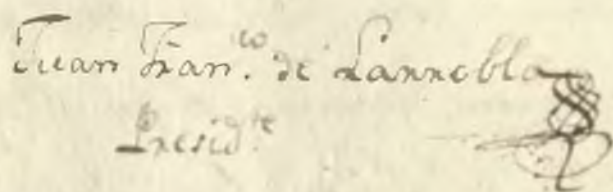 Juan Fran.co de Larrobla
Presid.te